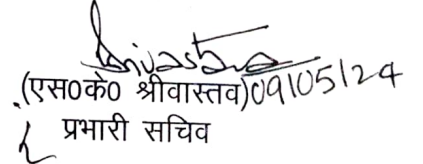 Srivastava
(एस०के० श्रीवास्तव)09105124
प्रभारी सचिव